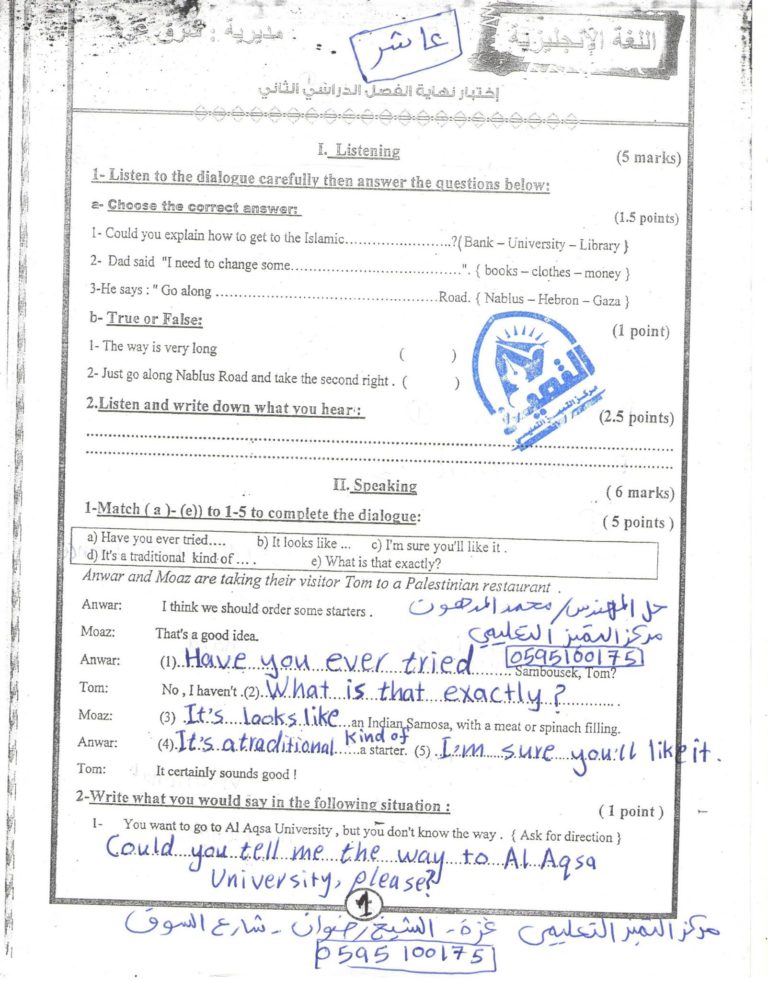 اللغة الإنجليزية
عاشر
مديرية :
إختبار نهاية الفصل الدراسي الثاني
I. Listening (5 marks)
1- Listen to the dialogue carefully then answer the questions below:
a- Choose the correct answer: (1.5 points)
1- Could you explain how to get to the Islamic........................?{ Bank – University – Library }
2- Dad said "I need to change some......................................". { books – clothes – money }
3-He says : " Go along ..................................................Road. { Nablus – Hebron – Gaza }
b- True or False: (1 point)
1- The way is very long ( )
2- Just go along Nablus Road and take the second right . ( )
2.Listen and write down what you hear : (2.5 points)
التميز
مركز التميز التعليمي
II. Speaking ( 6 marks)
1-Match ( a )- (e)) to 1-5 to complete the dialogue: ( 5 points )
a) Have you ever tried.... b) It looks like ... c) I'm sure you'll like it .
d) It's a traditional kind of .... . e) What is that exactly?
Anwar and Moaz are taking their visitor Tom to a Palestinian restaurant .
Anwar: I think we should order some starters .
حل المهندس/ محمد المدهون
Moaz: That's a good idea.
مركز التميز التعليمي
0595100175
Anwar: (1). Have you ever tried ...... Sambousek, Tom?
Tom: No , I haven't .(2). What is that exactly ? ..............
Moaz: (3) It's looks like ...an Indian Samosa, with a meat or spinach filling.
Anwar: (4). It's a traditional kind of ......a starter. (5) I'm sure you'll like it .
Tom: It certainly sounds good !
2-Write what you would say in the following situation : ( 1 point )
1- You want to go to Al Aqsa University , but you don't know the way . { Ask for direction }
Could you tell me the way to Al Aqsa
University, please?
1
مركز التميز التعليمي غزة - الشيخ رضوان - شارع السوق
0595 100175